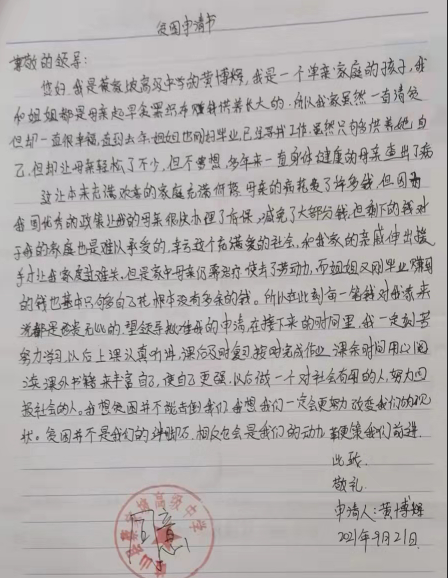 贫困申请书
尊敬的领导:
您好,我是黄坡高级中学的黄博辉,我是一个单亲家庭的孩子,我
和姐姐都是母亲起早贪黑赚钱供养长大的,所以我家虽然一直清贫
但却一直很幸福,直到去年,姐姐也刚好毕业,已经等找工作,虽然只够供养她自
己,但却让母亲轻松了不少,但不曾想,多年来一直身体健康的母亲查出了病
这让本来充满欢喜的家庭充满倒霉,母亲的病花费了许多钱,但因为
我国优秀的政策让我的母亲很快办理了医保,减免了大部分钱,但剩下的钱对
于我的家庭也是难以承受的,幸亏这个充满爱的社会,和我家的亲戚伸出援
手才让我家度过难关,但是家中母亲仍需治疗,使去了劳动力,而姐姐又刚毕业,赚到
的钱也基本只够自己花,根本没有多余的钱。所以在此刻每一笔钱对我家来
说都是珍贵无比的,望领导批准我的申请,在接下来的时间里,我一定刻苦
努力学习,以后上课认真听讲,课后及时复习,按时完成作业,课余时间用以阅
读课外书籍来丰富自己,使自己更强,以后做一个对社会有用的人,努力回
报社会的人。我想贫困并不能击倒我们,我想我们一定会更努力改变我们的现
状。贫困并不是我们的绊脚石,相反它会是我们的动力,鞭策我们前进.
此致
敬礼
申请人:黄博辉
2021年9月21日
同意